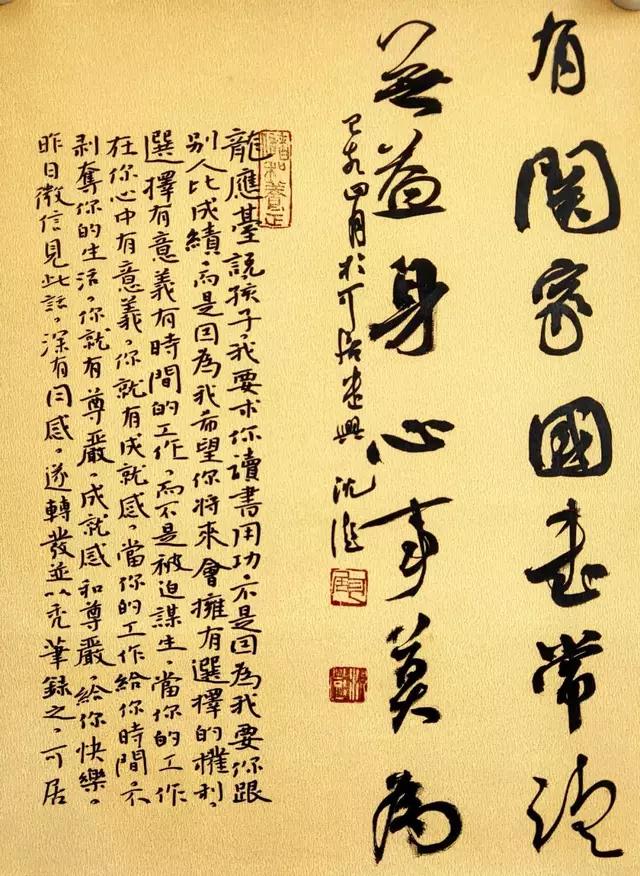 有關家國書常讀
無益身心事莫為
己亥四月於可居興 沈
龍應臺説孩子，我要求你讀書用功，不是因為我要你跟
別人比成績，而是因為我希望你將來會擁有選擇的權利，
選擇有意義有時間的工作，而不是被迫謀生，當你的工作
在你心中有意義，你就有成就感，當你的工作給你時間，不
剥奪你的生活，你就有尊嚴，成就感和尊嚴，給你快樂。
昨日微信見此話，深有同感，遂轉發並以禿筆錄之，可居